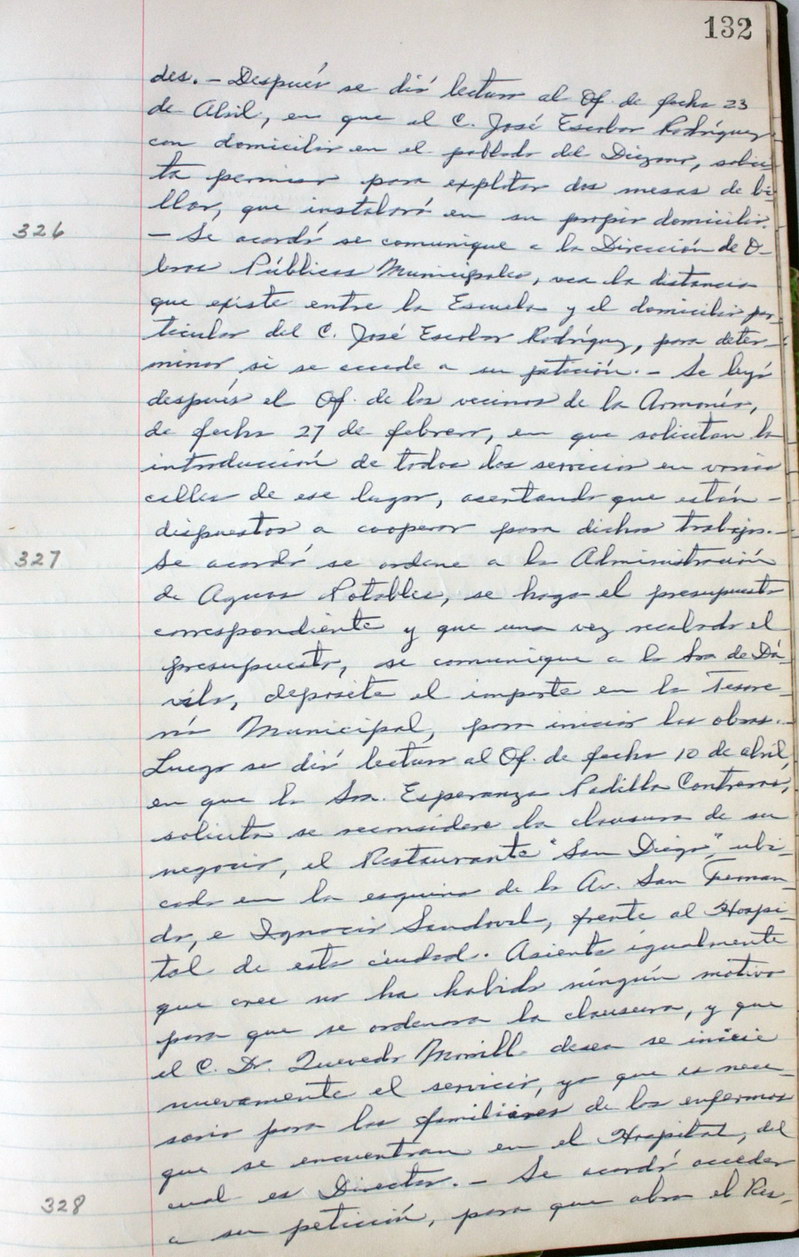 132
des. - Después se dió lectura al Of. de fecha 23
de Abril, en que el C. José Escobar Rodríguez
con domicilio en el poblado del Diezmo, solici-
ta permiso para explotar dos mesas de bi-
llar, que instalará en su propio domicilio.
326
- Se acordó se comunique a la Dirección de O-
bras Públicas Municipales, vea la distancia
que existe entre la Escuela y el domicilio par-
ticular del C. José Escobar Rodríguez, para deter-
minar si se accede a su petición. - Se leyó
después el Of. de los vecinos de la Armonía,
de fecha 27 de febrero, en que solicitan la
introducción de todos los servicios en varias
calles de ese lugar, asentando que están -
dispuestos a cooperar para dichos trabajos. -
327
Se acordó se ordene a la Administración
de Aguas Potables, se haga el presupuesto
correspondiente y que una vez recabado el
presupuesto, se comunique a la Sra de Dá-
vila, deposite el importe en la Tesore-
ría Municipal, para iniciar las obras. -
Luego se dió lectura al Of. de fecha 10 de abril,
en que la Sra. Esperanza Padilla Contreras,
solicita se reconsidere la clausura de su
negocio, el Restaurante "San Diego", ubi-
cado en la esquina de la Av. San Fernan-
do, e Ignacio Sandoval, frente al Hospi-
tal de esta ciudad. Asienta igualmente
que cree no ha habido ningún motivo
para que se ordenara la clausura, y que
el C. Dr. Quevedo Morrill desea se inicie
nuevamente el servicio, ya que es nece-
sario para los familiares de los enfermos
que se encuentran en el Hospital, del
cual es Director. - Se acordó acceder
328
a su petición, para que abra el Res-